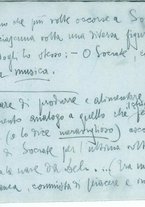 che più volte occorse a So
ciascuna volta una diversa figur
dogli lo stesso: – O Socrate, c
a musica.
are di produrre e alimentare
mento analogo a quello che
(o lo dice meraviglioso)
di Socrate per l'ultima volta
la nave da Delo. ...
commista di piacere e